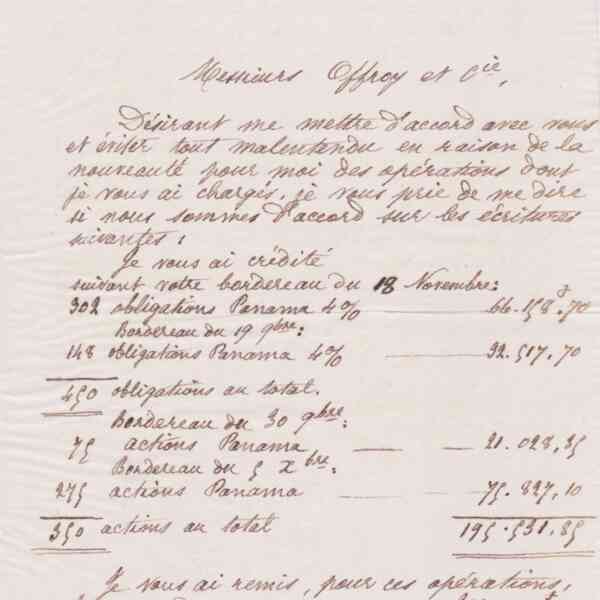 Messieurs Offroy et Cie,
Désirant me mettre d'accord avec vous
et éviter tout malentendu en raison de la
nouveauté pour moi des opérations dont
je vous ai chargés, je vous prie de me dire
si nous sommes d'accord sur les écritures
suivantes :
Je vous ai crédité
suivant votre bordereau du 18 Novembre:
302 obligations Panama 4% 66.158f.70
Bordereau du 19 9bre:
148 obligations Panama 4% 32.517,70
450 obligations au total.
Bordereau du 30 9bre:
75 actions Panama 21.028,35
Bordereau du 5 Xbre:
275 actions Panama 75.827,10
350 actions au total 195.531,85
Je vous ai remis, pour ces opérations,